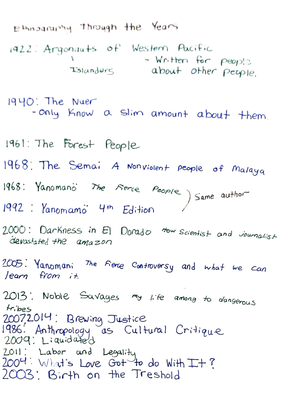 Ethnography Through the Years
1922: Argonauts of Western Pacific
Islanders
- Written for people
about other people.
1940: The Nuer
- Only Know a Slim amount about them
1961: The Forest People
1968: The Semai A Nonviolent people of Malaya
1968: Yanomanö The Fierce People
Same author
1992: Yanomamö 4th Edition
2000: Darkness in El Dorado How Scientist and Journalist
devastated the amazon
2005: Yanomani The Fierce Controversy and what we can
learn from it.
2013: Noble Savages My life among to dangerous
tribes
2007,2014: Brewing Justice
1986: Anthropology as Cultural Critique
2009: Liquidated
2011: Labor and Legality
2004: What's Love Got to do With It?
2003: Birth on the Treshold